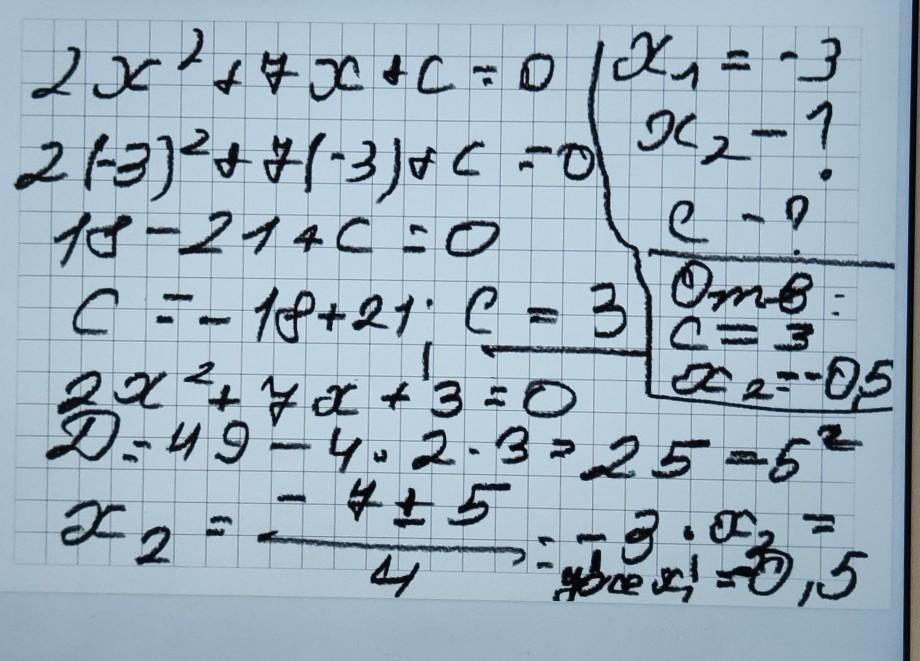 2x² + 7x + c = 0
2(-3)² + 7(-3) + c = 0
18 - 21 + c = 0
c = -18 + 21; c = 3
2x² + 7x + 3 = 0
D = 49 - 4 · 2 · 3 = 25 = 5²
x₂ = (-7 ± 5) / 4 = -3; x₂ =
уже x₁ = -0,5
x₁ = -3
x₂ - ?
c - ?
Отв:
c = 3
x₂ = -0,5